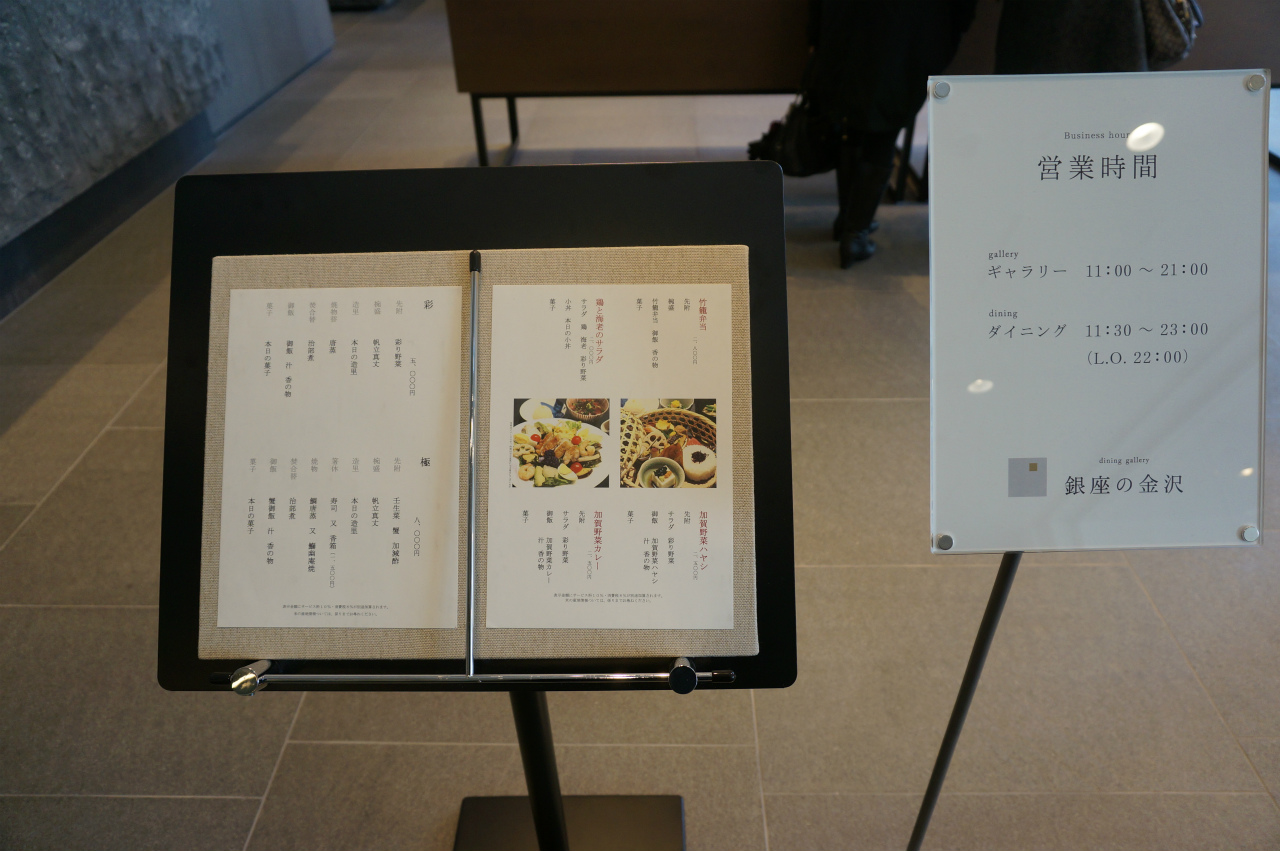 彩
五、〇〇〇円
先附 彩り野菜
椀盛 帆立真丈
造里 本日の造里
唐蒸
焚合替 治部煮
御飯 御飯 汁 香の物
菓子 本日の菓子
極
八、〇〇〇円
先附 壬生菜 蟹 加減酢
椀盛 帆立真丈
造里 本日の造里
寿司 又
焼物
焚合替 治部煮
御飯 蟹御飯 汁 香の物
菓子 本日の菓子
竹籠弁当
先附
椀盛
竹籠弁当 御飯 香の物
菓子
鶏と海老のサラダ
サラダ 鶏 海老 彩り野菜
小丼 本日の小丼
菓子
加賀野菜ハヤシ
先附
サラダ 彩り野菜
御飯 加賀野菜ハヤシ
汁 香の物
菓子
加賀野菜カレー
先附
サラダ 彩り野菜
御飯 加賀野菜カレー
汁 香の物
菓子
Business hour
営業時間
gallery
ギャラリー 11:00 ～ 21:00
dining
ダイニング 11:30 ～ 23:00
(L.O. 22:00)
dining gallery
銀座の金沢